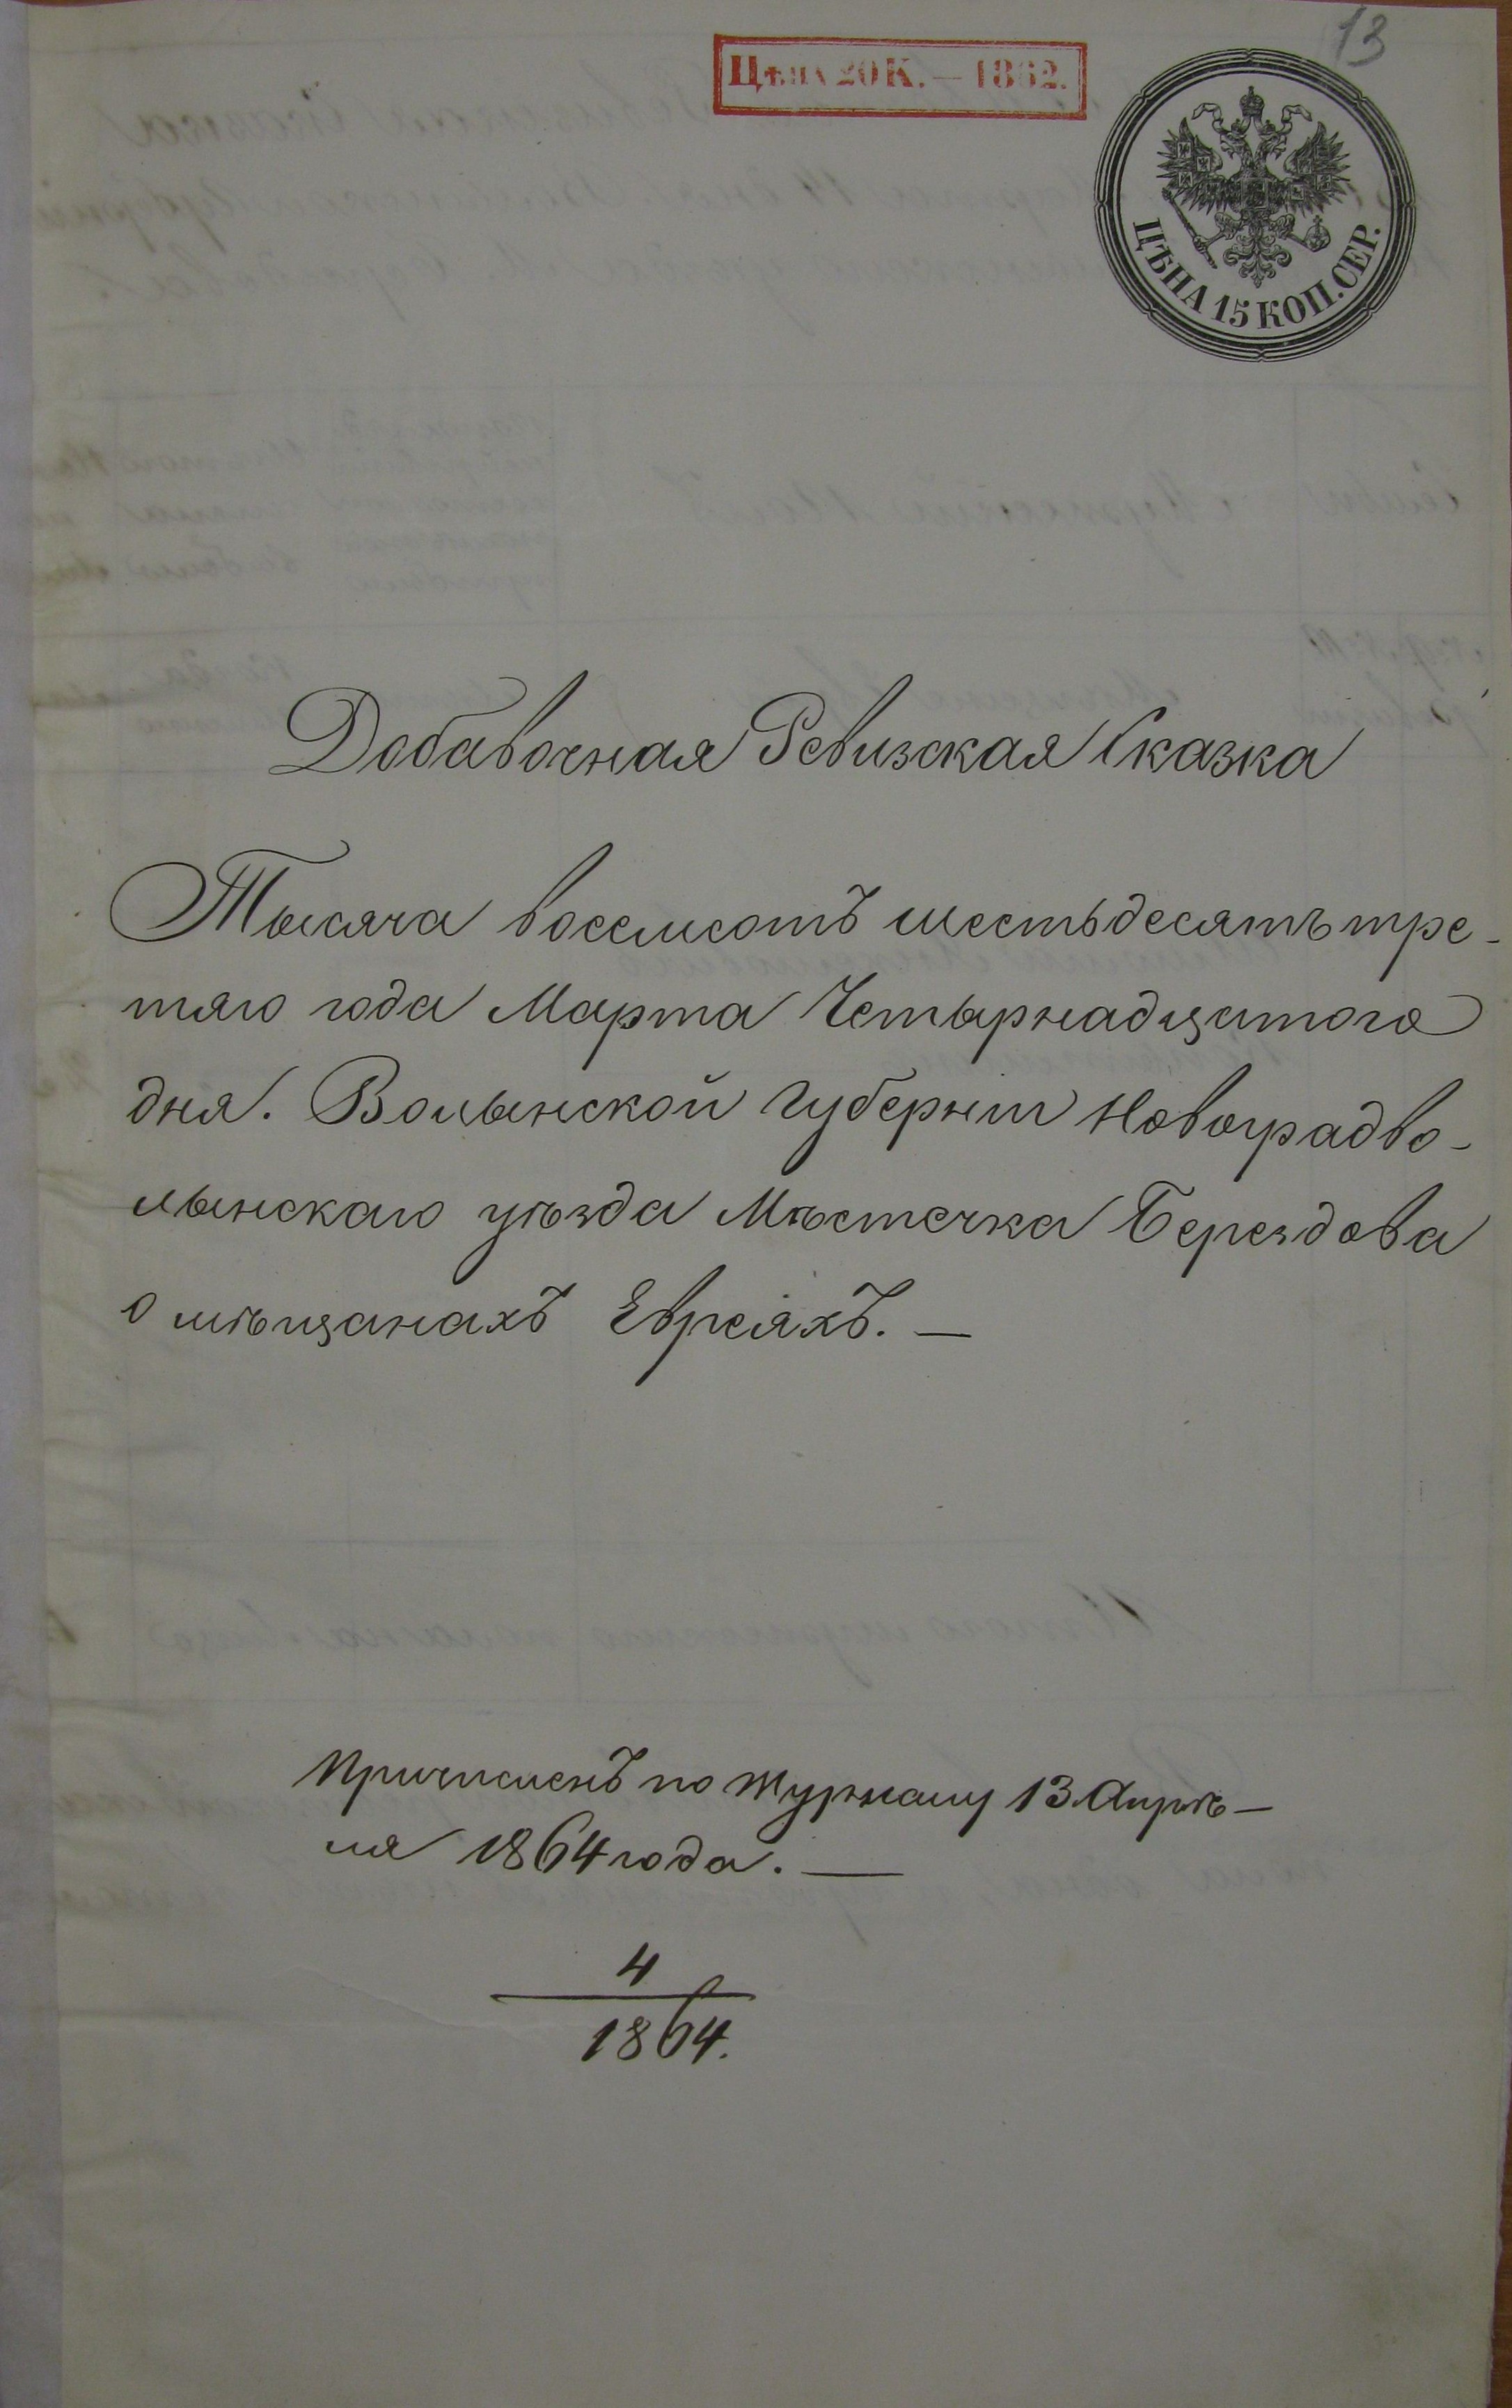 13
Цѣна 20 К. — 1862.
ЦѢНА 15 КОП. СЕР.
Добавочная Ревизская Сказка
Тысяча восемсотъ шестьдесятъ тре-
тяго года Марта Четырнадцатого
дня. Волынской Губерніи Новоградво-
лынскаго уѣзда Мѣстечка Берездова
о мѣщанахъ Евреяхъ. —
Причисленъ по Журналу 13 Апрѣ-
ля 1864 года. —
4
1864.